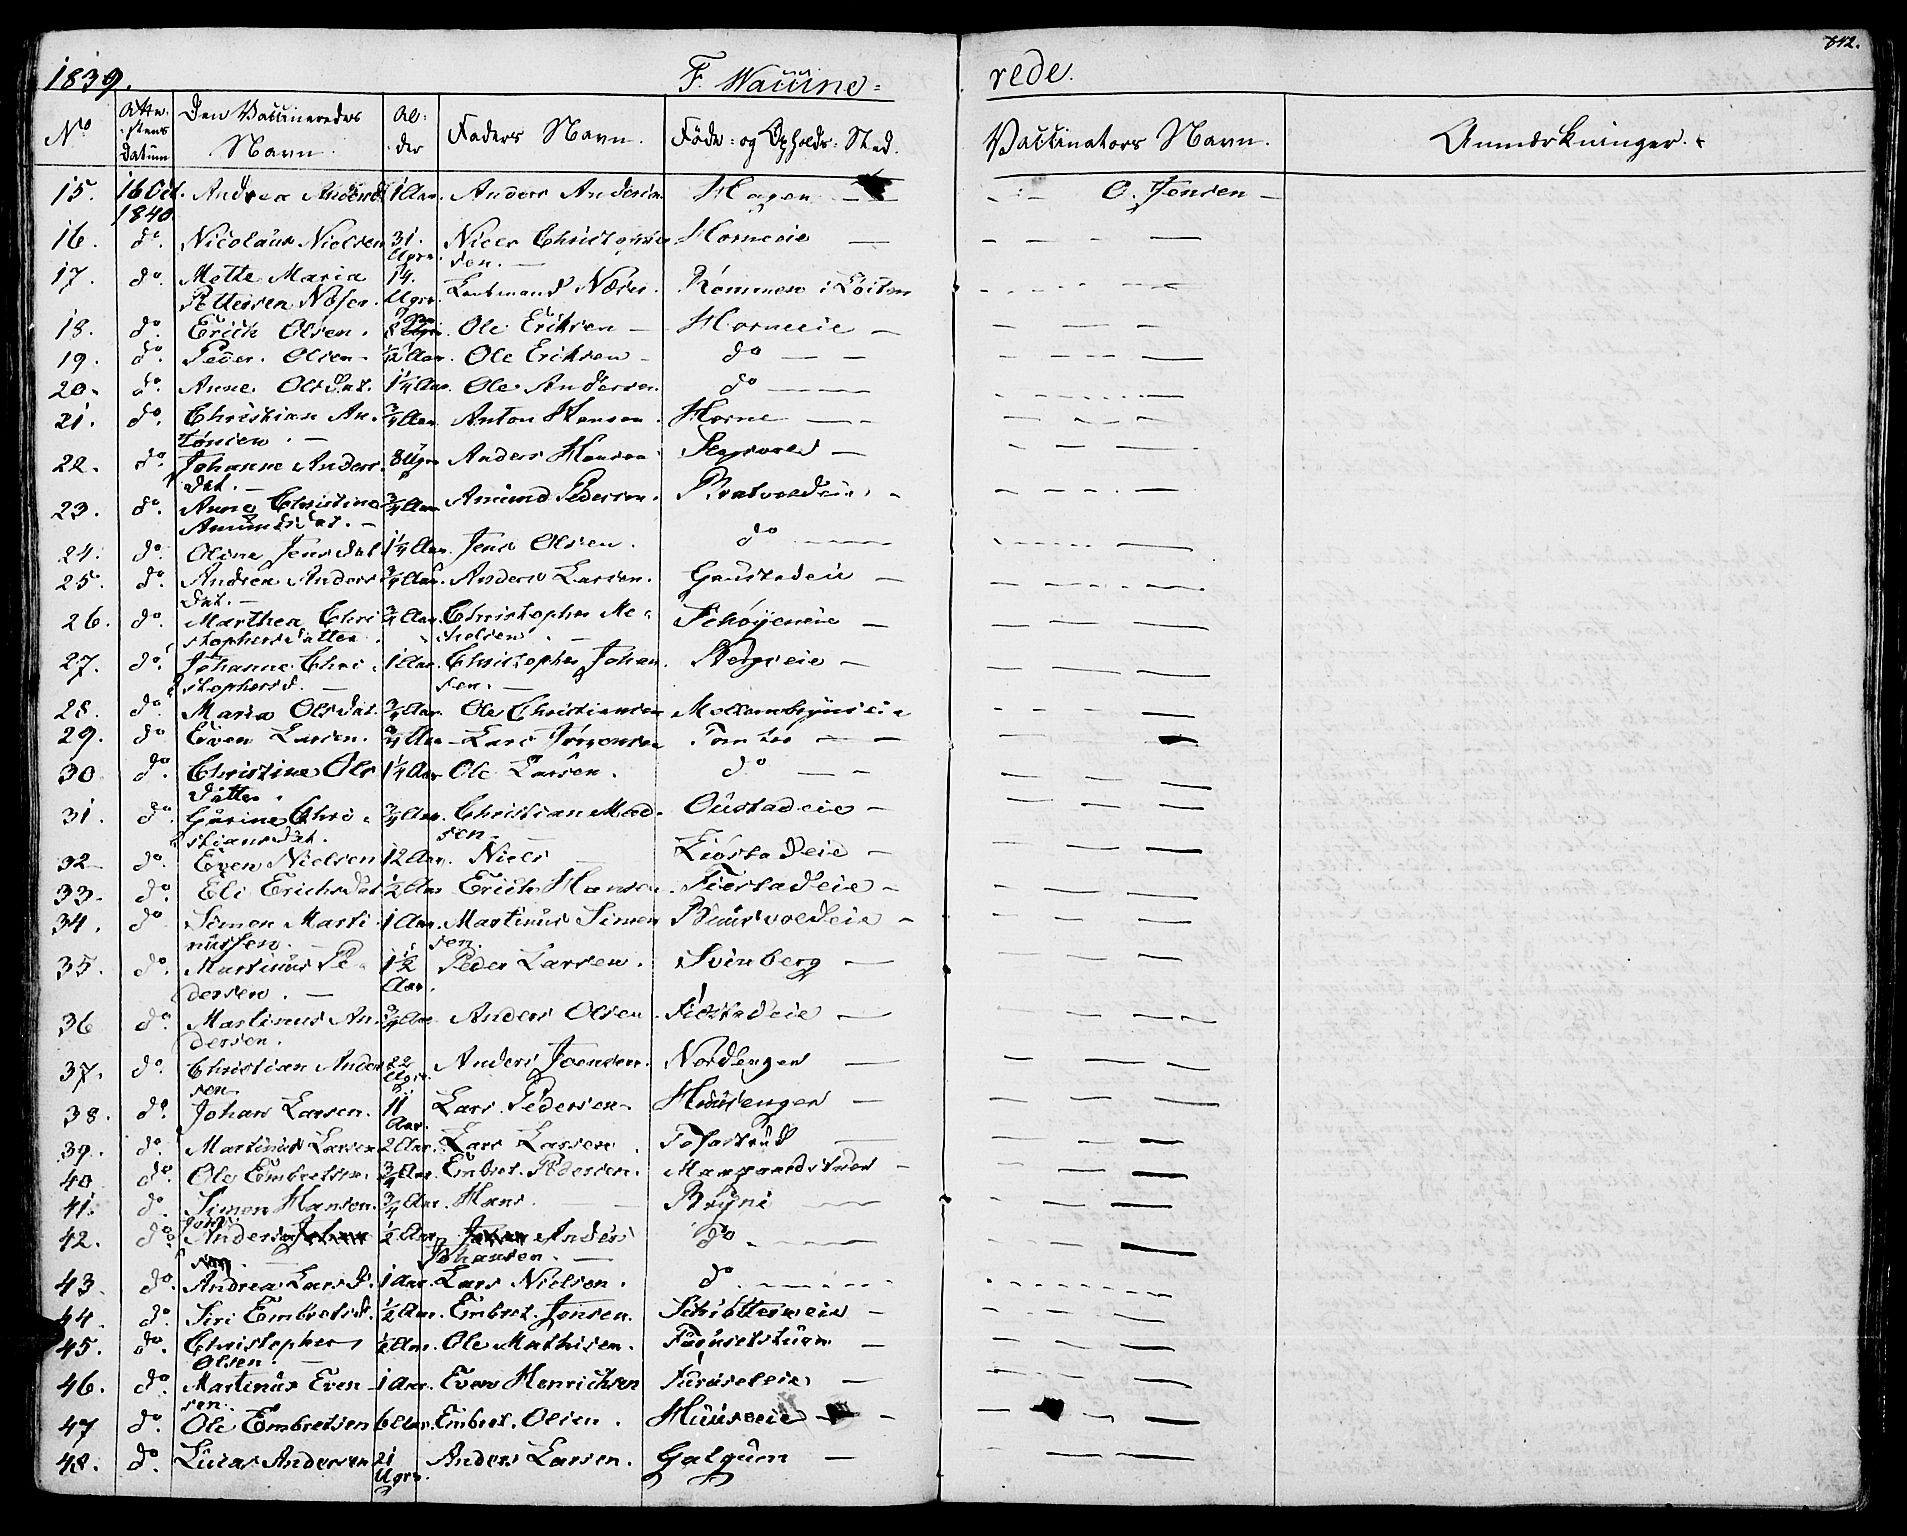 1839. F. Waccine= rede. 842.
No Atte-stens Datum Den Vaccineredes Navn. Al-der Faders Navn. Føde- og Opholds-Sted. Vaccinators Navn. Anmærkninger.
15. 16 Oct. 1840 Andrea Andersd 1 Aar. Anders Andersen Hagen — O. Jensen —
16. do. Nicolaus Nielsen 31. Ugr. Niels Christophersen. — Horneeie —
17. do. Mette Maria Pettersen Næser. 14. Ugr. Leutnand Næser. Rømmen i Løiten
18. do. Erich Olsen. 8 Ole Eriksen — Horneeie —
19. do. Peder Olsen — ½ Aar. Ole Eriksen — do —
20. do. Anne Olsdat. 1¼ Aar. Ole Andersen. do —
21. do. Christian Antonsen. — ¾ Aar Anton Hansen. Horne —
22. do. Johanne Andersdat. — 8 Ugr. Anders Hansen —
23. do. Anne Christine Amundsdat. — ¾ Aar Amund Pedersen. —
24. do. Oline Jensdat 1¼ Aar. Jens Olsen. do —
25. do. Andrea Andersdat. — ¾ Aar. Anders Larsen. Gaustadeie —
26. do. Marthea Christophersdatter. ¾ Aar. Christopher Michelsen. — Schøyeneie —
27. do. Johanne Christophersd. — 1 Aar. Christopher Johansen. — Bergseie —
28. do. Maria Olsdat. ¾ Aar. Ole Christiansen Mellembyeneie
29. do Even Larsen. ¾ Aar Lars Jörgensen Tomter —
30 do. Christine Olsdatter. 1¼ Aar Ole Larsen. do —
31. do. Gurine Christiansdat. ¾ Aar. Christian Madsen — Oustadeie —
32 do. Even Nielsen 12 Aar. Niels — Fiestadeie —
33. do. Eli Erichsdat ½ Aar Erich Hansen. Fiestadeie —
34. do Simon Martinussen. — 1 Aar. Martinus Simensen. —
35. do. Martinus Pedersen. — 1½ Aar. Peder Larsen. Svinberg —
36 do. Martinus Andersen. ¾ Aar Anders Olsen. Fiestadeie —
37. do. Christian Andersen 22 Ugr. Anders Joensen. Nordlengen —
38. do. Johan Larsen. 11 Aar. Lars Pedersen. Huusengen —
39. do. Martinus Larsen 2 Aar. Lars Larsen. Tofastrud —
40 do. Ole Embretsen. ¾ Aar. Embret Pedersen. —
41. do. Simon Hansen. ¾ Aar. Hans — Bryni —
42. do. Anders Johansen ½ Aar Anders Johansen. — do —
43. do. Andrea Larsd. 1 Aar. Lars Nielsen. do —
44. do. Siri Embretsd. ½ Aar. Embret Jonsen. Schiøtterneeie —
45. do. Christopher Olsen. — ½ Aar. Ole Mathisen. Furusetstuen —
46. do. Martinus Evensen. 1 Aar. Even Henrichsen Furuseteie —
47 do. Ole Embretsen 6 Aar. Embret Olsen. Huuseeie —
48. do. Lucas Andersen 21 Ugr. Anders Larsen. Galgum —